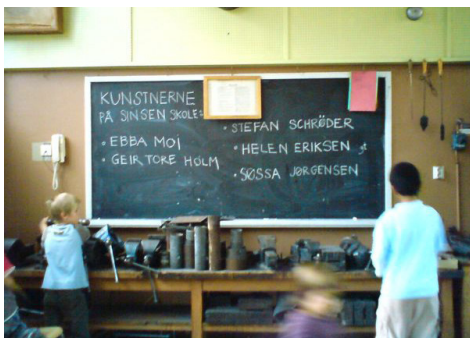 KUNSTNERNE
PÅ SINSEN SKOLE:
• EBBA MOI
• GEIR TORE HOLM
• STEFAN SCHRÖDER
• HELEN ERIKSEN
• SØSSA JØRGENSEN